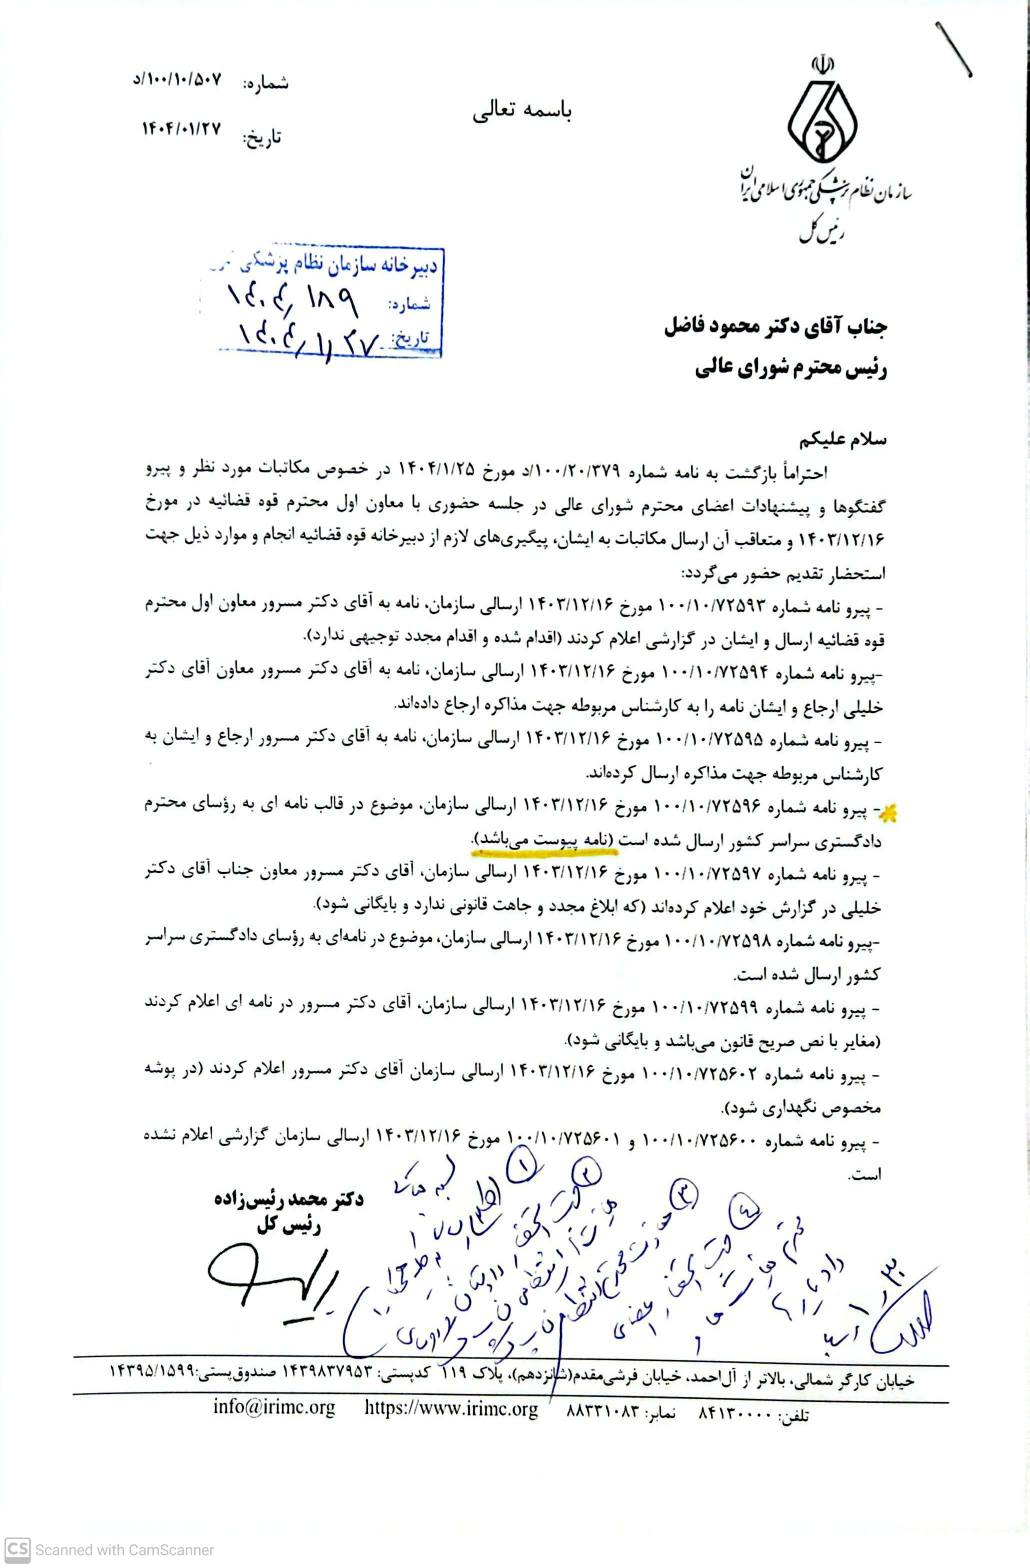 شماره: ۱۰۰/۱۰/۵۰۷/د
تاریخ: ۱۴۰۴/۰۱/۲۷
باسمه تعالی
سازمان نظام پزشکی جمهوری اسلامی ایران
رئیس کل
دبیرخانه سازمان نظام پزشکی
شماره: ۱۴۰۴/۱۸۹
تاریخ: ۱۴۰۴/۱/۲۷
جناب آقای دکتر محمود فاضل
رئیس محترم شورای عالی
سلام علیکم
احتراماً بازگشت به نامه شماره ۱۰۰/۲۰/۳۷۹/د مورخ ۱۴۰۴/۱/۲۵ در خصوص مکاتبات مورد نظر و پیرو
گفتگوها و پیشنهادات اعضای محترم شورای عالی در جلسه حضوری با معاون اول محترم قوه قضائیه در مورخ
۱۴۰۳/۱۲/۱۶ و متعاقب آن ارسال مکاتبات به ایشان، پیگیری‌های لازم از دبیرخانه قوه قضائیه انجام و موارد ذیل جهت
استحضار تقدیم حضور می‌گردد:
- پیرو نامه شماره ۱۰۰/۱۰/۷۲۵۹۳ مورخ ۱۴۰۳/۱۲/۱۶ ارسالی سازمان، نامه به آقای دکتر مسرور معاون اول محترم
قوه قضائیه ارسال و ایشان در گزارشی اعلام کردند (اقدام شده و اقدام مجدد توجیهی ندارد).
-پیرو نامه شماره ۱۰۰/۱۰/۷۲۵۹۴ مورخ ۱۴۰۳/۱۲/۱۶ ارسالی سازمان، نامه به آقای دکتر مسرور معاون آقای دکتر
خلیلی ارجاع و ایشان نامه را به کارشناس مربوطه جهت مذاکره ارجاع داده‌اند.
- پیرو نامه شماره ۱۰۰/۱۰/۷۲۵۹۵ مورخ ۱۴۰۳/۱۲/۱۶ ارسالی سازمان، نامه به آقای دکتر مسرور ارجاع و ایشان به
کارشناس مربوطه جهت مذاکره ارسال کرده‌اند.
- پیرو نامه شماره ۱۰۰/۱۰/۷۲۵۹۶ مورخ ۱۴۰۳/۱۲/۱۶ ارسالی سازمان، موضوع در قالب نامه ای به رؤسای محترم
دادگستری سراسر کشور ارسال شده است (نامه پیوست می‌باشد).
- پیرو نامه شماره ۱۰۰/۱۰/۷۲۵۹۷ مورخ ۱۴۰۳/۱۲/۱۶ ارسالی سازمان، آقای دکتر مسرور معاون جناب آقای دکتر
خلیلی در گزارش خود اعلام کرده‌اند (که ابلاغ مجدد و جاهت قانونی ندارد و بایگانی شود).
-پیرو نامه شماره ۱۰۰/۱۰/۷۲۵۹۸ مورخ ۱۴۰۳/۱۲/۱۶ ارسالی سازمان، موضوع در نامه‌ای به رؤسای دادگستری سراسر
کشور ارسال شده است.
- پیرو نامه شماره ۱۰۰/۱۰/۷۲۵۹۹ مورخ ۱۴۰۳/۱۲/۱۶ ارسالی سازمان، آقای دکتر مسرور در نامه ای اعلام کردند
(مغایر با نص صریح قانون می‌باشد و بایگانی شود).
- پیرو نامه شماره ۱۰۰/۱۰/۷۲۵۶۰۲ مورخ ۱۴۰۳/۱۲/۱۶ ارسالی سازمان آقای دکتر مسرور اعلام کردند (در پوشه
مخصوص نگهداری شود).
- پیرو نامه شماره ۱۰۰/۱۰/۷۲۵۶۰۰ و ۱۰۰/۱۰/۷۲۵۶۰۱ مورخ ۱۴۰۳/۱۲/۱۶ ارسالی سازمان گزارشی اعلام نشده
است.
دکتر محمد رئیس‌زاده
رئیس کل
خیابان کارگر شمالی، بالاتر از آل‌احمد، خیابان فرشی‌مقدم(شانزدهم)، پلاک ۱۱۹ کدپستی: ۱۴۳۹۸۳۷۹۵۳ صندوق‌پستی:۱۴۳۹۵/۱۵۹۹
تلفن: ۸۴۱۳۰۰۰۰ نمابر: ۸۸۳۳۱۰۸۳ https://www.irimc.org info@irimc.org
CS Scanned with CamScanner